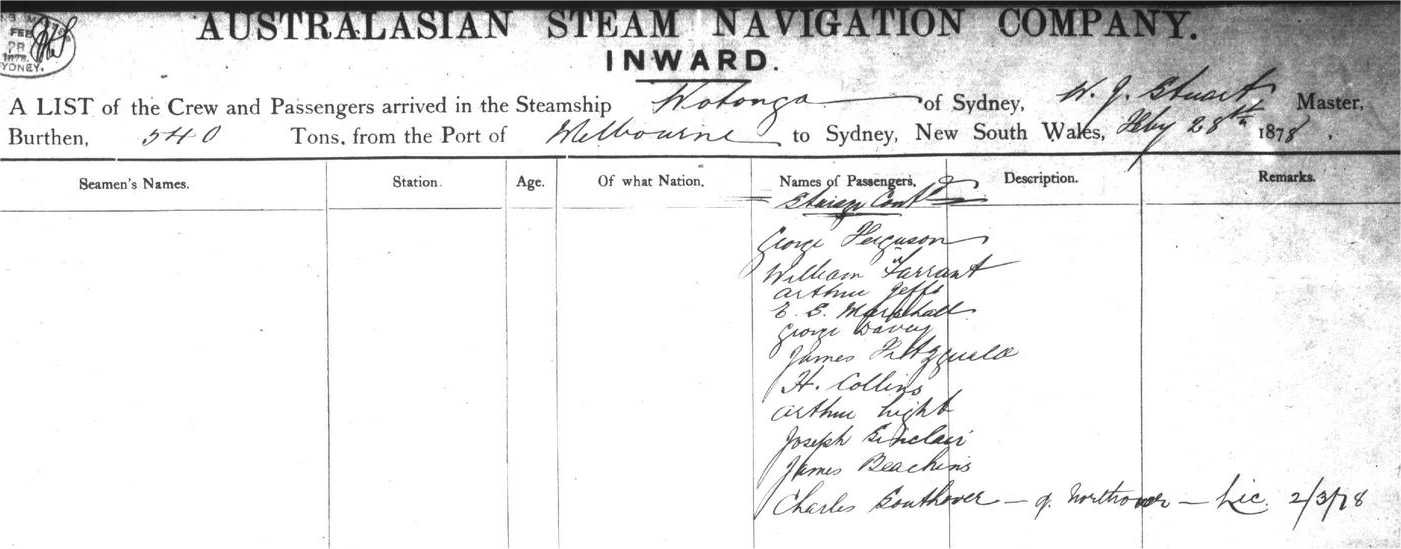 AUSTRALASIAN STEAM NAVIGATION COMPANY.
FEB
PR
1878
SYDNEY.
INWARD.
A LIST of the Crew and Passengers arrived in the Steamship Wotonga of Sydney, W. J. Stuart Master,
Burthen, 540 Tons, from the Port of Melbourne to Sydney, New South Wales, Feby 28th 1878.
Seamen's Names. Station. Age. Of what Nation. Names of Passengers. Description. Remarks.
Steerage Contd
George Ferguson
William Farrant
Arthur Jeffs
E. E. Marshall
George Davey
James Fitzgerald
H. Collins
Arthur Light
Joseph Sinclair
James Beachins
Charles Southover — Northover — Lic. 2/3/78